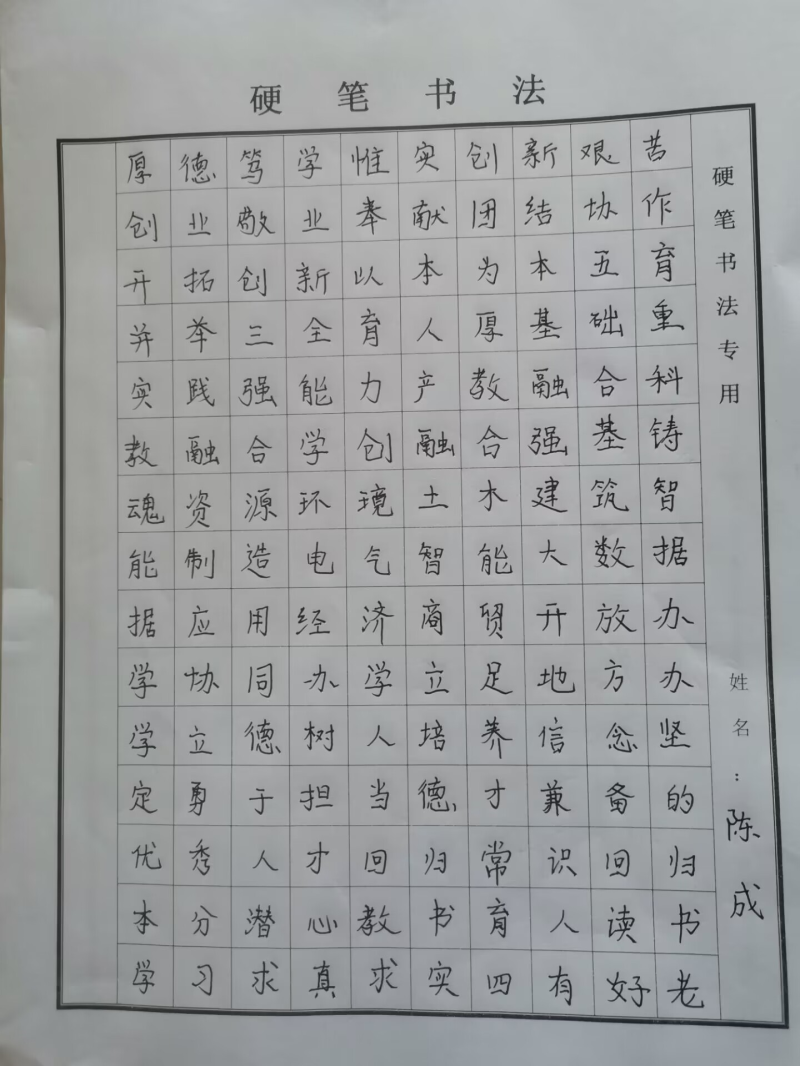 硬笔书法
厚德笃学惟实创新艰苦
创业敬业奉献团结协作
开拓创新以本为本五育
并举三全育人厚基础重
实践强能力产教融合科
教融合学创融合强基铸
魂资源环境土木建筑智
能制造电气智能大数据
据应用经济商贸开放办
学协同办学立足地方办
学立德树人培养信念坚
定勇于担当德才兼备的
优秀人才回归常识回归
本分潜心教书育人读书
学习求真求实四有好老
硬笔书法专用
姓名:陈成